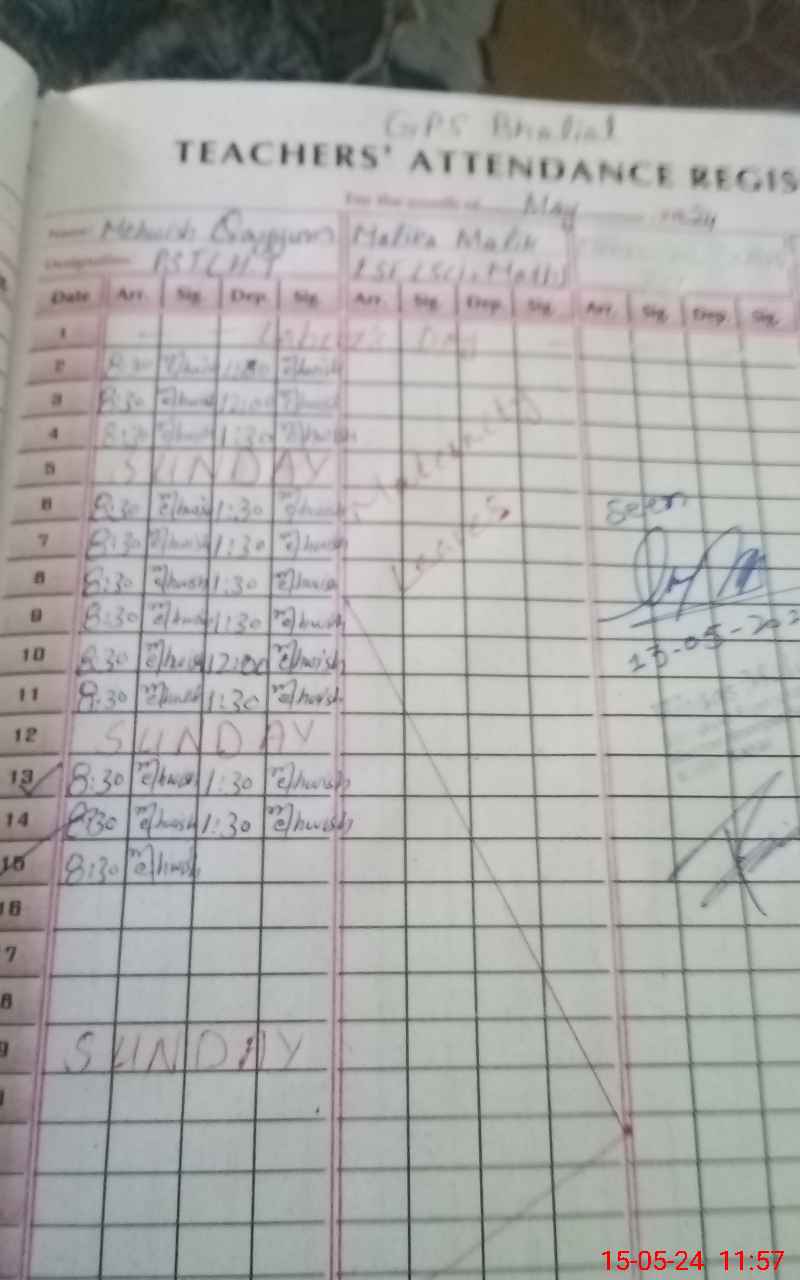 GPS Bhalial
TEACHERS' ATTENDANCE REGIS
For the month of May 2024
Name Mehwish Qayyum Malika Malik
Designation PST (H.T
Date Arr. Sig. Dep. Sig. Arr. Sig. Dep. Sig. Arr. Sig. Dep. Sig.
1 Labour's Day
2 8:30 Mehwish Mehwish
3 8:30 Mehwish 12:00 Mehwish
4 8:30 Mehwish 1:30 Mehwish
5 SUNDAY
Maternity
Leaves
6 8:30 Mehwish 1:30 Mehwish
Seen
7 8:30 Mehwish 1:30 Mehwish
8 8:30 Mehwish 1:30 Mehwish
9 8:30 Mehwish 1:30 Mehwish
13-05-202
10 8:30 Mehwish 12:00 Mehwish
11 8:30 Mehwish 1:30 Mehwish
12 SUNDAY
13 8:30 Mehwish 1:30 Mehwish
14 8:30 Mehwish 1:30 Mehwish
15 8:30 Mehwish
16
7
8
9 SUNDAY
15-05-24 11:57